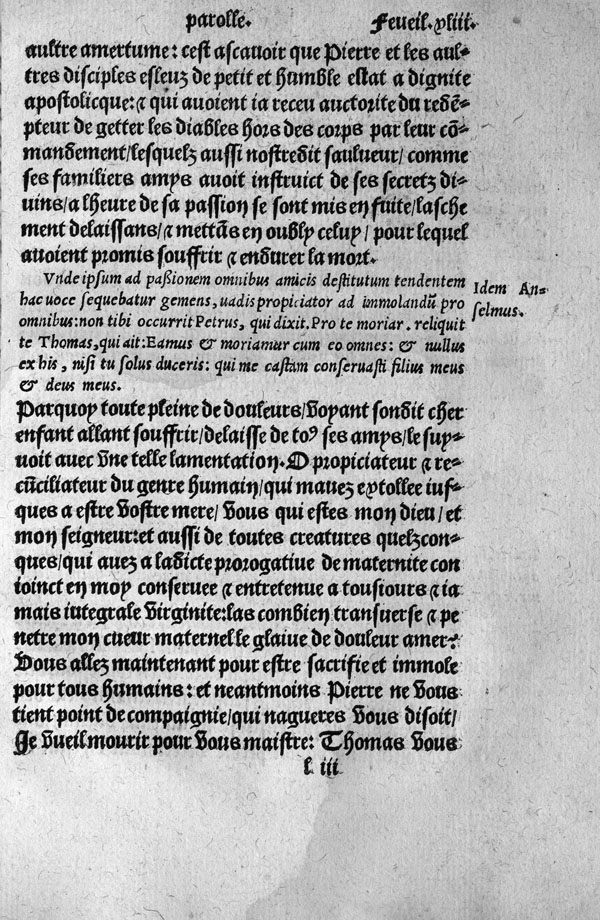 parolle. Feueil. xliii.
aultre amertume: cest ascauoir que Pierre et les aul-
tres disciples esleuz de petit et humble estat a dignite
apostolicque: ⁊ qui auoient ia receu auctorite du redē-
pteur de getter les diables hors des corps par leur cō-
mandement/lesquelz aussi nostredit saulueur/ comme
ses familiers amys auoit instruict de ses secretz di-
uins/a lheure de sa passion se sont mis en fuite/lasche
ment delaissans/⁊ mettās en oubly celuy/ pour lequel
auoient promis souffrir ⁊ endurer la mort.
Vnde ipsum ad paßionem omnibus amicis destitutum tendentem
hac uoce sequebatur gemens, uadis propiciator ad immolandū pro
omnibus: non tibi occurrit Petrus, qui dixit. Pro te moriar. reliquit
te Thomas, qui ait: Eamus & moriamur cum eo omnes: & nullus
ex his, nisi tu solus duceris: qui me castam conseruasti filius meus
& deus meus.
Idem An-
selmus.
Parquoy toute pleine de douleurs/voyant sondit cher
enfant allant souffrir/delaisse de toꝰ ses amys/le suy-
uoit auec vne telle lamentation. O propiciateur ⁊ re-
cūciliateur du genre humain/qui mauez extollee iuf-
ques a estre vostre mere/ vous qui estes mon dieu/ et
mon seigneur: et aussi de toutes creatures quelzcon-
ques/qui auez a ladicte prorogatiue de maternite con
ioinct en moy conseruee ⁊ entretenue a tousiours ⁊ ia
mais integrale virginite: las combien transuerse ⁊ pe
netre mon cueur maternel le glaiue de douleur amer:
Vous allez maintenant pour estre sacrifie et immole
pour tous humains: et neantmoins Pierre ne vous
tient point de compaignie/qui nagueres vous disoit/
Je vueil mourir pour vous maistre: Thomas vous
l iii